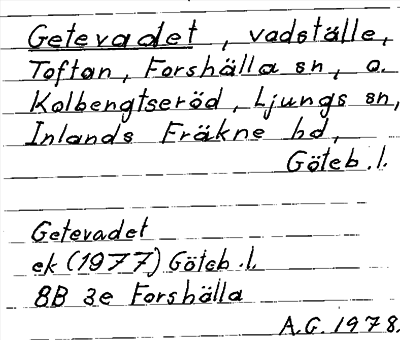 Getevadet, vadställe,
Toftan, Forshälla sn, o.
Kolbengtseröd, Ljungs sn,
Inlands Fräkne hd,
Göteb.l.
Getevadet
ek (1977) Göteb.l.
8B 3e Forshälla
A.G. 1978.